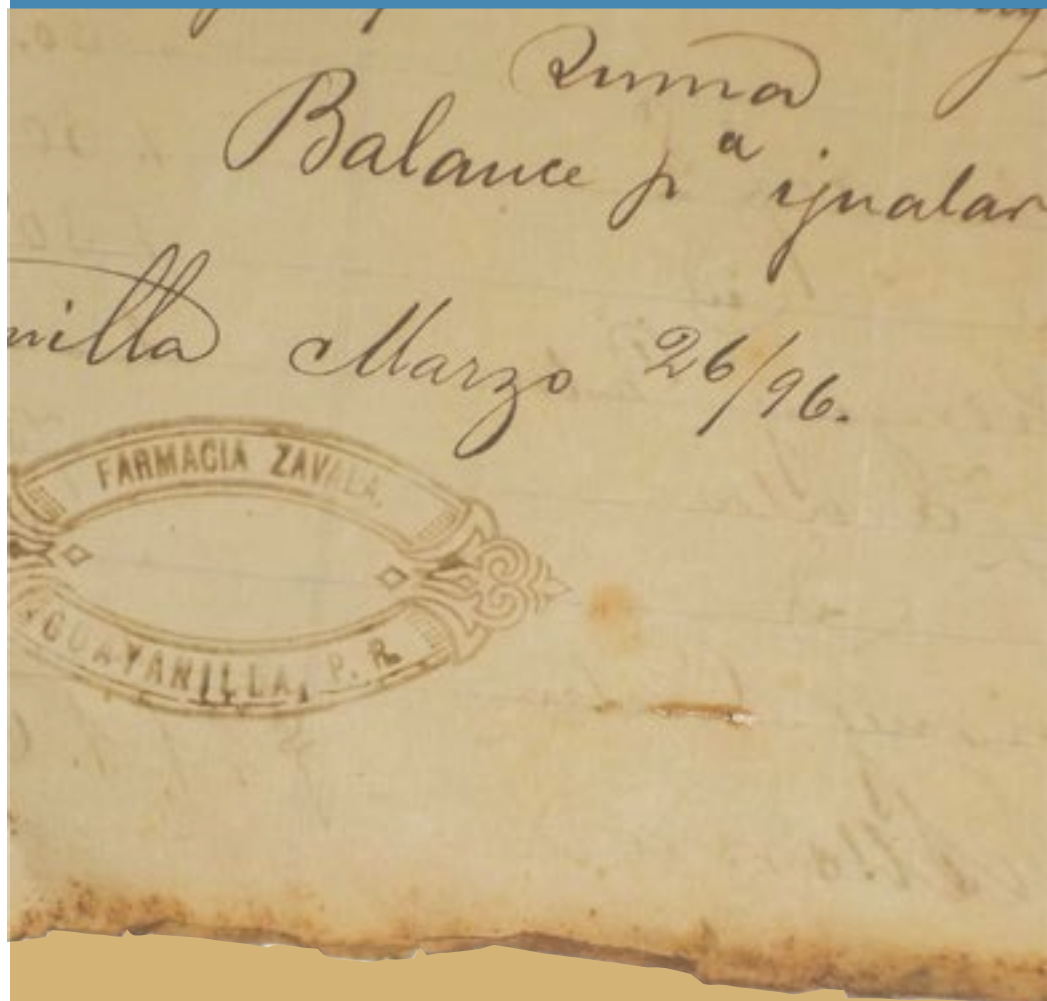 Suma
Balance pª igualar
nilla Marzo 26/96.
FARMACIA ZAVALA.
GUAYANILLA, P. R.